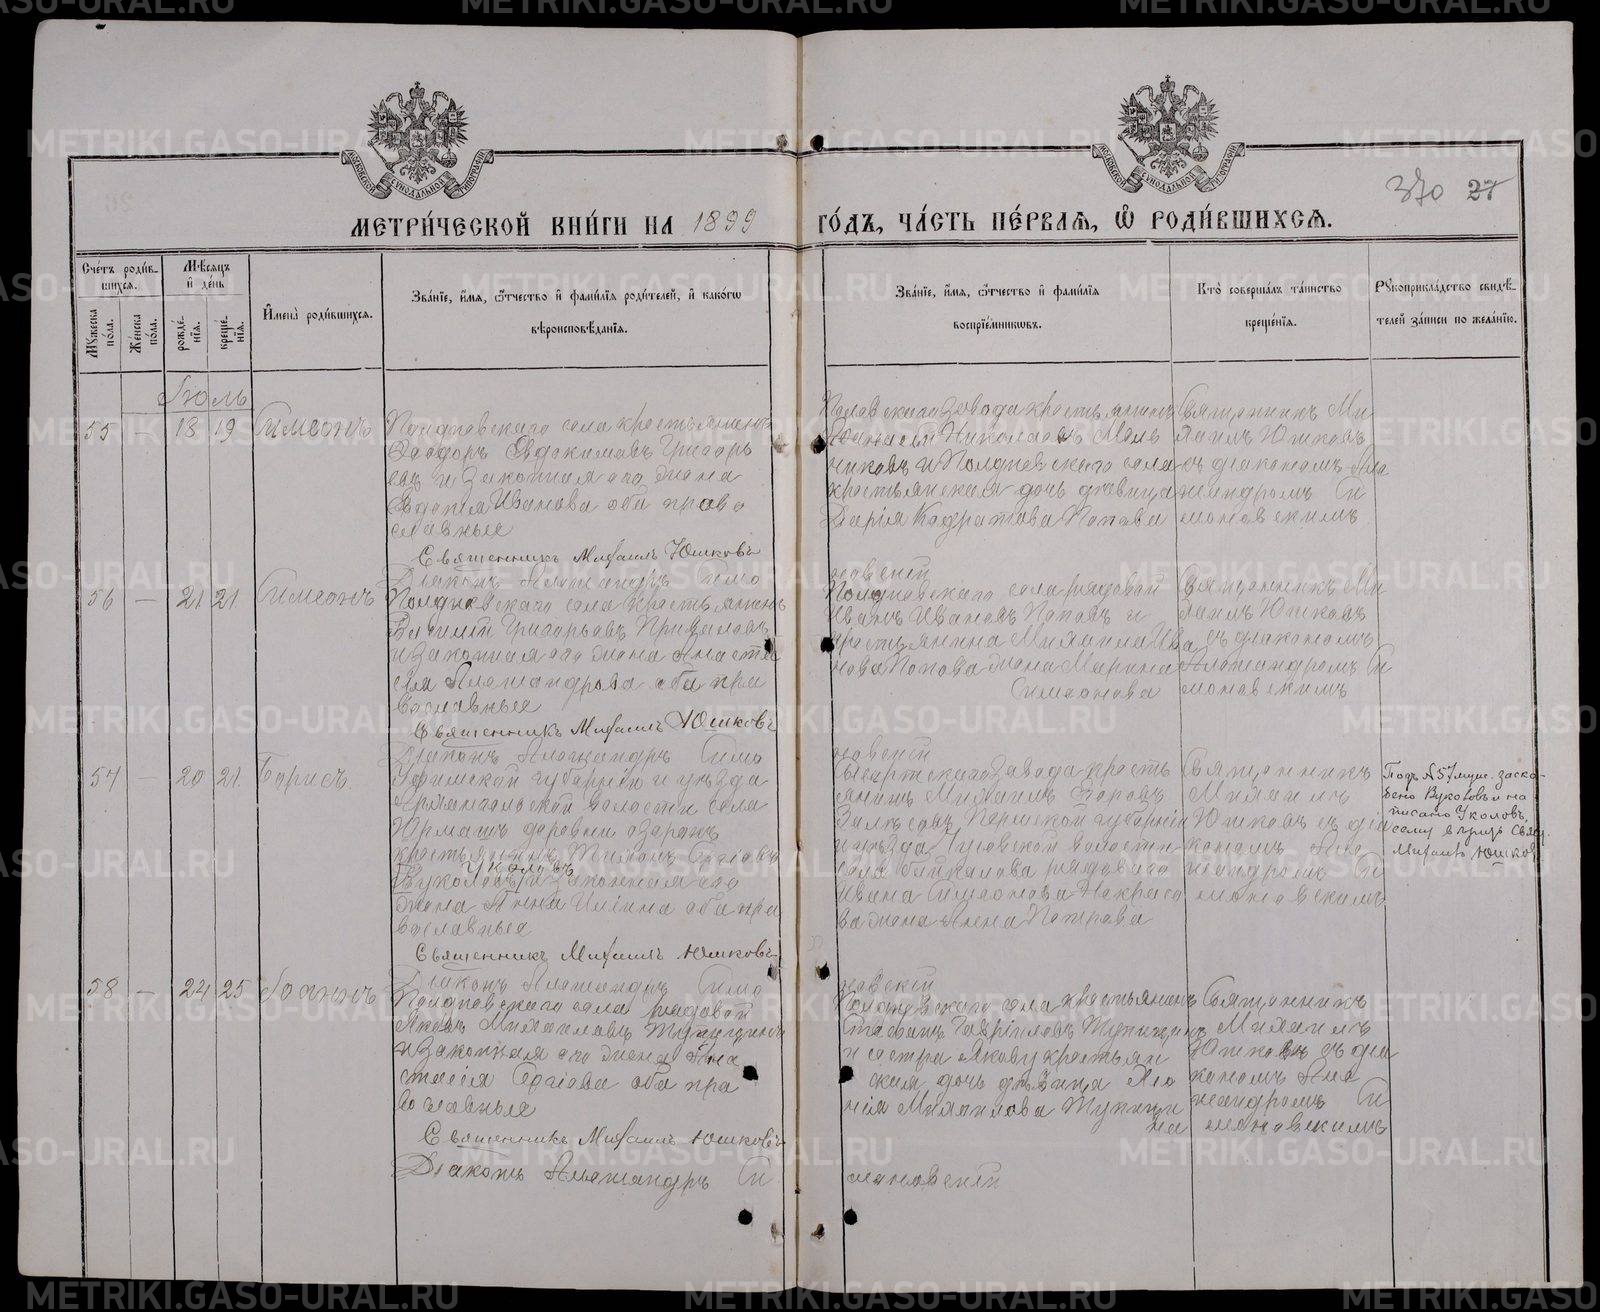 МЕТРИ́ЧЕСКОЙ КНИ́ГИ НА 1899 ГО́ДЪ, ЧА́СТЬ ПЕ́РВАѦ, Ѡ҆ РОДИ́ВШИХСѦ.
370 27
Сче́тъ роди́в-
шихсѧ.
Мꙋ́жеска по́ла.
Же́нска по́ла.
Мѣ́сѧцъ и҆ де́нь
рожде́-
нїѧ.
креще́-
нїѧ.
И҆мена̀ роди́вшихсѧ.
Зва́нїе, и҆́мѧ, ѻ҆́тчество и҆ фами́лїѧ роди́телей, и҆ како́гѡ
вѣроисповѣ́данїѧ.
Зва́нїе, и҆́мѧ, ѻ҆́тчество и҆ фами́лїѧ
воспрїе́мникѡвъ.
Кто̀ соверша́лъ та́инство
креще́нїѧ.
Рꙋкоприкла́дство свидѣ́-
телей за́писи по жела́нїю.
Іюль
55 — 18 19 Симеонъ
Полдневскаго села крестьянинъ
Ѳеодоръ Евдокимовъ Григорь
евъ и законная его жена
Ивановa оба право
славные
Священникъ Михаилъ Юшковъ
Діаконъ Александръ Симо
новскій
Полевскаго завода крестьянинъ
Николаевъ Мель
никовъ и Полдневскаго села
крестьянская дочь девица
Дарія Кодратова Попова
Священникъ Ми
хаилъ Юшковъ
съ діакономъ Але
ксандромъ Си
моновскимъ
56 — 21 21 Симеонъ
Полдневскаго села крестьянинъ
Василій Григорьевъ Приваловъ
и законная его жена Анаста
сія Александрова оба пра
вославные
Священникъ Михаилъ Юшковъ
Діаконъ Александръ Симо
новскій
Полдневскаго села рядовой
Иванъ Ивановъ Поповъ и
крестьянина Михаила Ива
нова Попова жена Марина
Симеонова
Священникъ Ми
хаилъ Юшковъ
съ діакономъ
Александромъ Си
моновскимъ
57 — 20 21 Борисъ
Уфимской губерніи и уѣзда
волости села
Юрмашъ деревни
крестьянинъ Тимонъ Сергіевъ
Уколовъ
Вуколовъ и законная его
жена Анна Иліина оба пра
вославные
Священникъ Михаилъ Юшковъ
Діаконъ Александръ Симо
новскій
Сысертскаго завода кресть
янинъ Михаилъ
Пермской губерніи
и уѣзда волости
села рядоваго
Ивана Симеонова Некрасо
ва жена Анна Петрова
Священникъ
Михаилъ
Юшковъ съ діа
кономъ Але
ксандромъ Си
моновскимъ
Подъ №57 муж. заско-
бено Вуколовъ и на
писано Уколовъ,
въ Свящ.
Михаилъ Юшковъ
58 — 24 25 Іоаннъ
Полдневскаго села рядовой
Яковъ Михаиловъ Тупицинъ
и законная его жена Ана
стасія Сергіева оба пра
вославные
Священникъ Михаилъ Юшковъ
Діаконъ Александръ Си
моновскій
Полдневскаго села крестьянинъ
Стефанъ Гавріиловъ Тупицинъ
и сестра Якову крестьян
ская дочь дѣвица
Михаилова Тупици
на
Священникъ
Михаилъ
Юшковъ съ діа
кономъ Але
ксандромъ Си
моновскимъ
METRIKI.GASO-URAL.RU